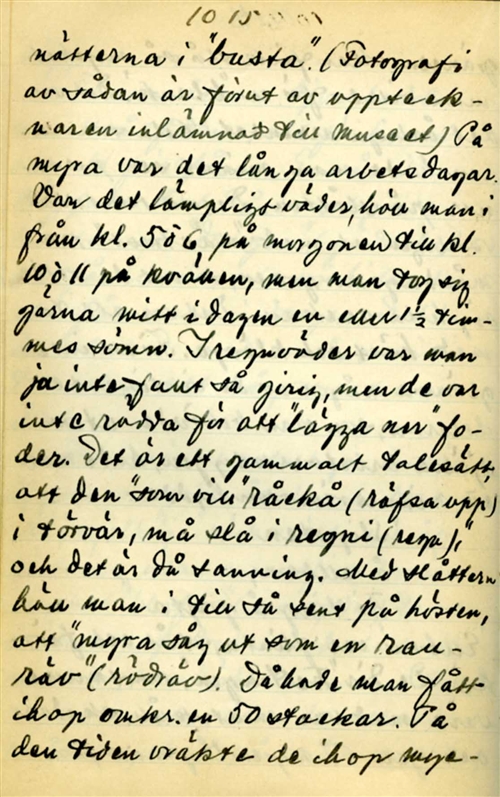 10 15
nätterna i "busta". (Fotografi
av sådan är förut av uppteck-
naren inlämnad till museet) På
myra var det långa arbetsdagar.
Var det lämpligt väder, höll man i
från kl. 5 à 6 på morgonen till kl.
10 à 11 på kvällen, men man tog sig
gärna mitt i dagen en eller 1½ tim-
mes sömn. I regnväder var man
ju inte fullt så girig, men de var
inte rädda för att "lägga ner" fo-
der. Det är ett gammalt talesätt,
att den "som vill råckå (räfsa upp)
i törvär, må slå i regni (regn),"
och det är då sanning. Med slåttern
höll man i till så sent på hösten,
att "myra såg ut som en rau-
räv" (rödräv). Då hade man fått
ihop omkr. en 50 stackar. På
den tiden vräkte de ihop myc-